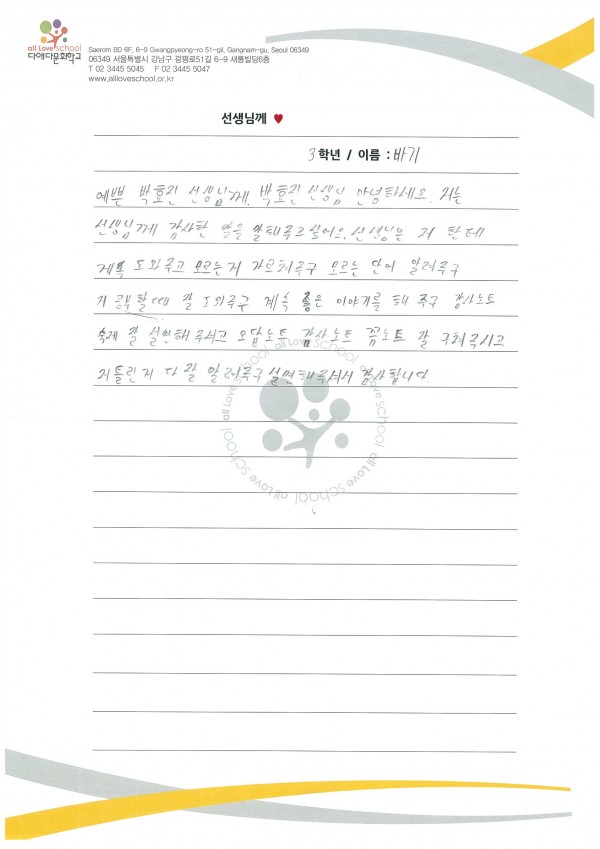 all Love school
다애다문화학교
Saerom BD 6F, 6-9 Gwangpyeong-ro 51-gil, Gangnam-gu, Seoul 06349
06349 서울특별시 강남구 광평로51길 6-9 새롬빌딩6층
T 02 3445 5045 F 02 3445 5047
www.alloveschool.or.kr
선생님께 ♥
3학년 / 이름 : 바기
예쁜 박효진 선생님께. 박효진 선생님 안녕하세요. 저는
선생님께 감사한 말을 말해주고 싶어요. 선생님은 저 한테
계속 도와주고 모르는거 가르쳐주구 모르는 단어 알려주구
저 공부할때 잘 도와주구 계속 좋은 이야기를 해 주구 감사노트
숙제 잘 설명해 주시고 오답노트 감사노트 꿈노트 잘 주시고
저 틀린거 다 잘 알려주구 설명해주셔서 감사합니다.
all Love school all Love school all Love school all Love school